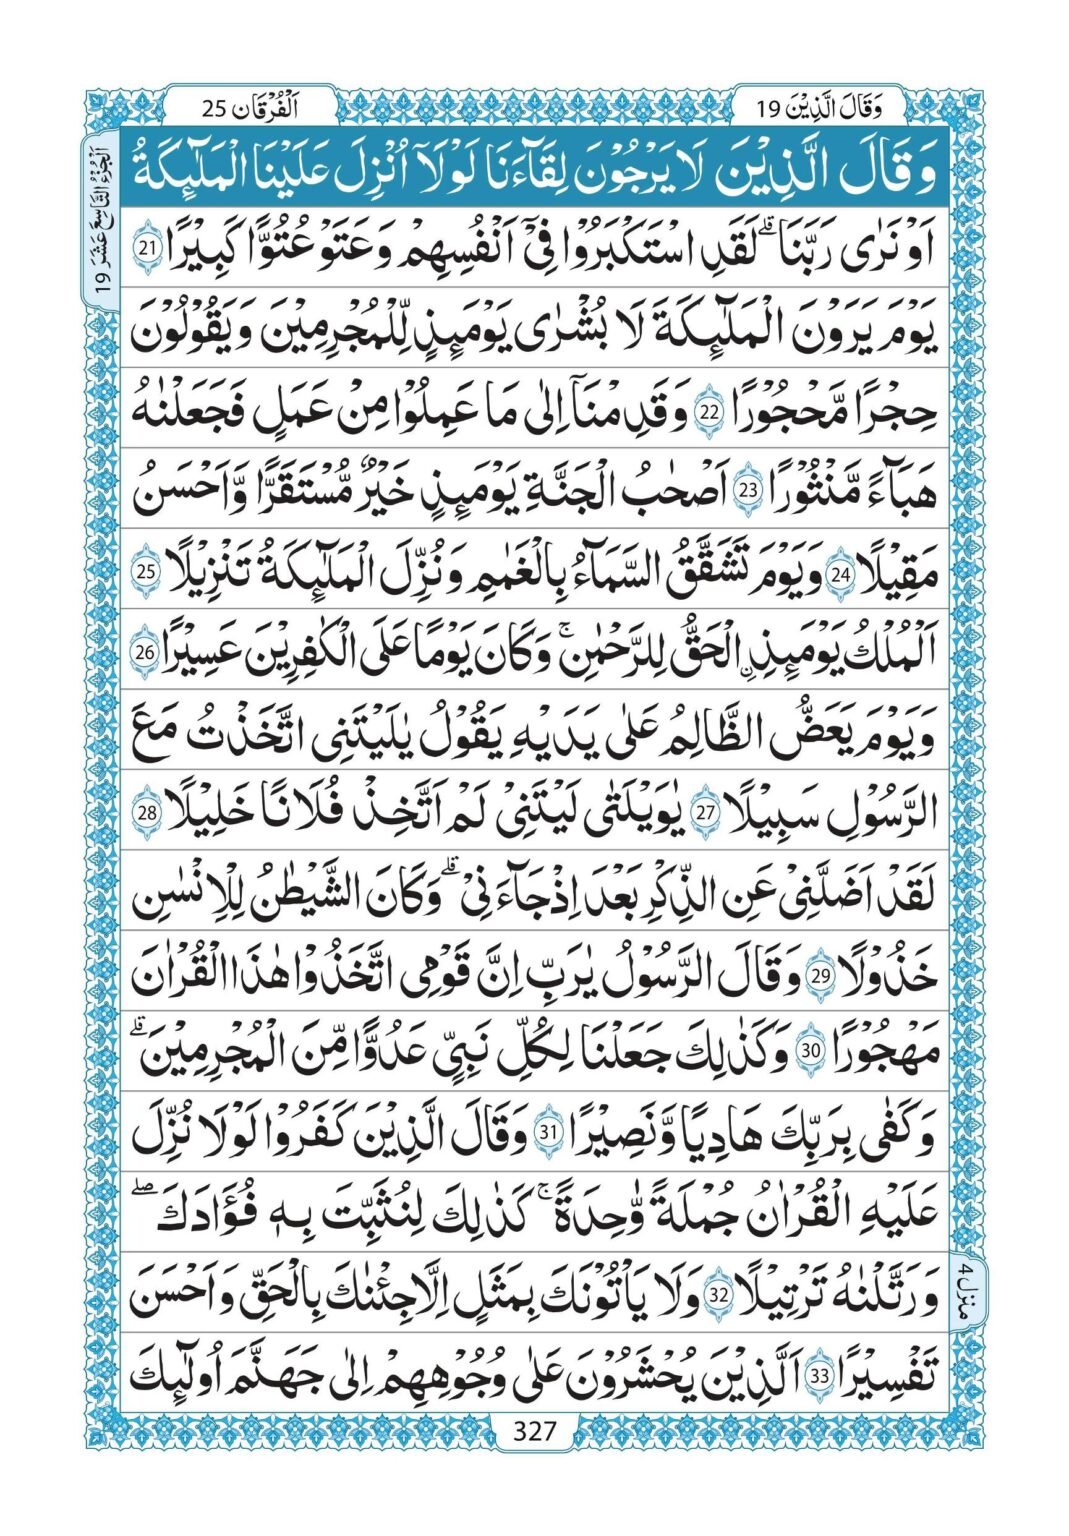 وَقَالَ الَّذِيْنَ 19
اَلْفُرْقَان 25
اَلْجُزْءُ التَّاسِعَ عَشَرَ 19
وَقَالَ الَّذِيْنَ لَا يَرْجُوْنَ لِقَآءَنَا لَوْلَآ اُنْزِلَ عَلَيْنَا الْمَلٰٓئِكَةُ
اَوْ نَرٰى رَبَّنَا ؕ لَقَدِ اسْتَكْبَرُوْا فِىْٓ اَنْفُسِهِمْ وَعَتَوْ عُتُوًّا كَبِيْرًا 21
يَوْمَ يَرَوْنَ الْمَلٰٓئِكَةَ لَا بُشْرٰى يَوْمَئِذٍ لِّلْمُجْرِمِيْنَ وَيَقُوْلُوْنَ
حِجْرًا مَّحْجُوْرًا 22 وَقَدِمْنَآ اِلٰى مَا عَمِلُوْا مِنْ عَمَلٍ فَجَعَلْنٰهُ
هَبَآءً مَّنْثُوْرًا 23 اَصْحٰبُ الْجَنَّةِ يَوْمَئِذٍ خَيْرٌ مُّسْتَقَرًّا وَّاَحْسَنُ
مَقِيْلًا 24 وَيَوْمَ تَشَقَّقُ السَّمَآءُ بِالْغَمٰمِ وَنُزِّلَ الْمَلٰٓئِكَةُ تَنْزِيْلًا 25
اَلْمُلْكُ يَوْمَئِذِ ِۨالْحَقُّ لِلرَّحْمٰنِ ۚ وَكَانَ يَوْمًا عَلَى الْكٰفِرِيْنَ عَسِيْرًا 26
وَيَوْمَ يَعَضُّ الظَّالِمُ عَلٰى يَدَيْهِ يَقُوْلُ يٰلَيْتَنِى اتَّخَذْتُ مَعَ
الرَّسُوْلِ سَبِيْلًا 27 يٰوَيْلَتٰى لَيْتَنِىْ لَمْ اَتَّخِذْ فُلَانًا خَلِيْلًا 28
لَقَدْ اَضَلَّنِىْ عَنِ الذِّكْرِ بَعْدَ اِذْ جَآءَنِىْ ۗ وَكَانَ الشَّيْطٰنُ لِلْاِنْسٰنِ
خَذُوْلًا 29 وَقَالَ الرَّسُوْلُ يٰرَبِّ اِنَّ قَوْمِى اتَّخَذُوْا هٰذَا الْقُرْاٰنَ
مَهْجُوْرًا 30 وَكَذٰلِكَ جَعَلْنَا لِكُلِّ نَبِىٍّ عَدُوًّا مِّنَ الْمُجْرِمِيْنَ ۗ
وَكَفٰى بِرَبِّكَ هَادِيًا وَّنَصِيْرًا 31 وَقَالَ الَّذِيْنَ كَفَرُوْا لَوْلَا نُزِّلَ
عَلَيْهِ الْقُرْاٰنُ جُمْلَةً وَّاحِدَةً ۚ كَذٰلِكَ لِنُثَبِّتَ بِهٖ فُؤَادَكَ ۖ
وَرَتَّلْنٰهُ تَرْتِيْلًا 32 وَلَا يَاْتُوْنَكَ بِمَثَلٍ اِلَّا جِئْنٰكَ بِالْحَقِّ وَاَحْسَنَ
تَفْسِيْرًا 33 اَلَّذِيْنَ يُحْشَرُوْنَ عَلٰى وُجُوْهِهِمْ اِلٰى جَهَنَّمَ اُولٰٓئِكَ
منزل 4
327